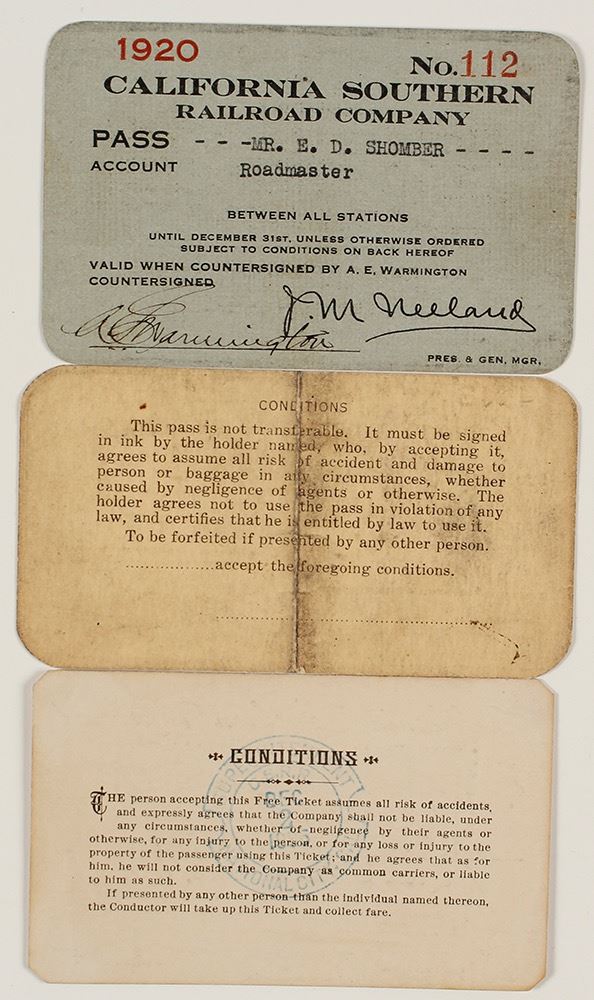 1920
No.112
CALIFORNIA SOUTHERN
RAILROAD COMPANY
PASS - - -MR. E. D. SHOMBER - - - -
ACCOUNT Roadmaster
BETWEEN ALL STATIONS
UNTIL DECEMBER 31ST, UNLESS OTHERWISE ORDERED
SUBJECT TO CONDITIONS ON BACK HEREOF
VALID WHEN COUNTERSIGNED BY A. E. WARMINGTON
COUNTERSIGNED
A E Warmington
J. M Neeland
PRES. & GEN. MGR.
CONDITIONS
This pass is not transferable. It must be signed
in ink by the holder named, who, by accepting it,
agrees to assume all risk of accident and damage to
person or baggage in any circumstances, whether
caused by negligence of agents or otherwise. The
holder agrees not to use the pass in violation of any
law, and certifies that he is entitled by law to use it.
To be forfeited if presented by any other person.
..................accept the foregoing conditions.
CONDITIONS
THE person accepting this Free Ticket assumes all risk of accidents,
and expressly agrees that the Company shall not be liable, under
any circumstances, whether of negligence by their agents or
otherwise, for any injury to the person, or for any loss or injury to the
property of the passenger using this Ticket; and he agrees that as for
him, he will not consider the Company as common carriers, or liable
to him as such.
If presented by any other person than the individual named thereon,
the Conductor will take up this Ticket and collect fare.
DEC